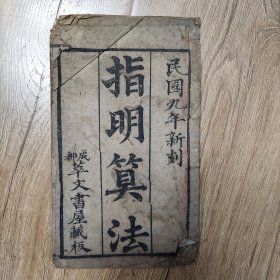 民國九年新刻
指明算法
成都
萃文書屋藏板